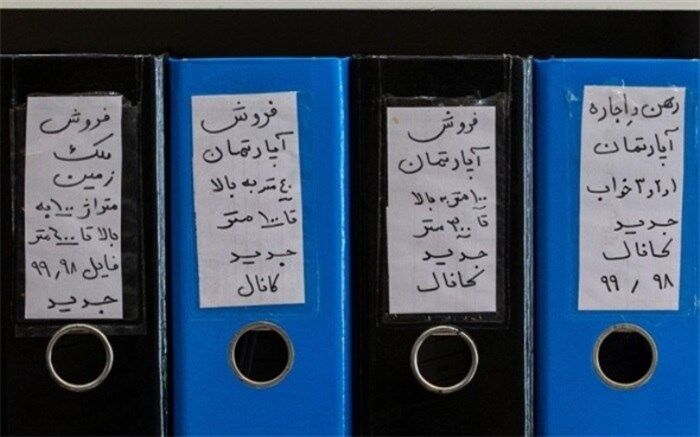 رهن و اجاره
آپارتمان
۱و۲و۳ خواب
جدید
کانال
۹۸ , ۹۹
فروش
آپارتمان
۱۰۰ متر به بالا
تا ۳۰۰ متر
جدید
کانال
فروش
آپارتمان
۴۰ متر به بالا
تا ۱۰۰ متر
جدید
کانال
فروش
ملک
زمین
متراژ ۱۰۰ به
بالا تا ۶۰۰ متر
فایل ۹۸ , ۹۹
جدید